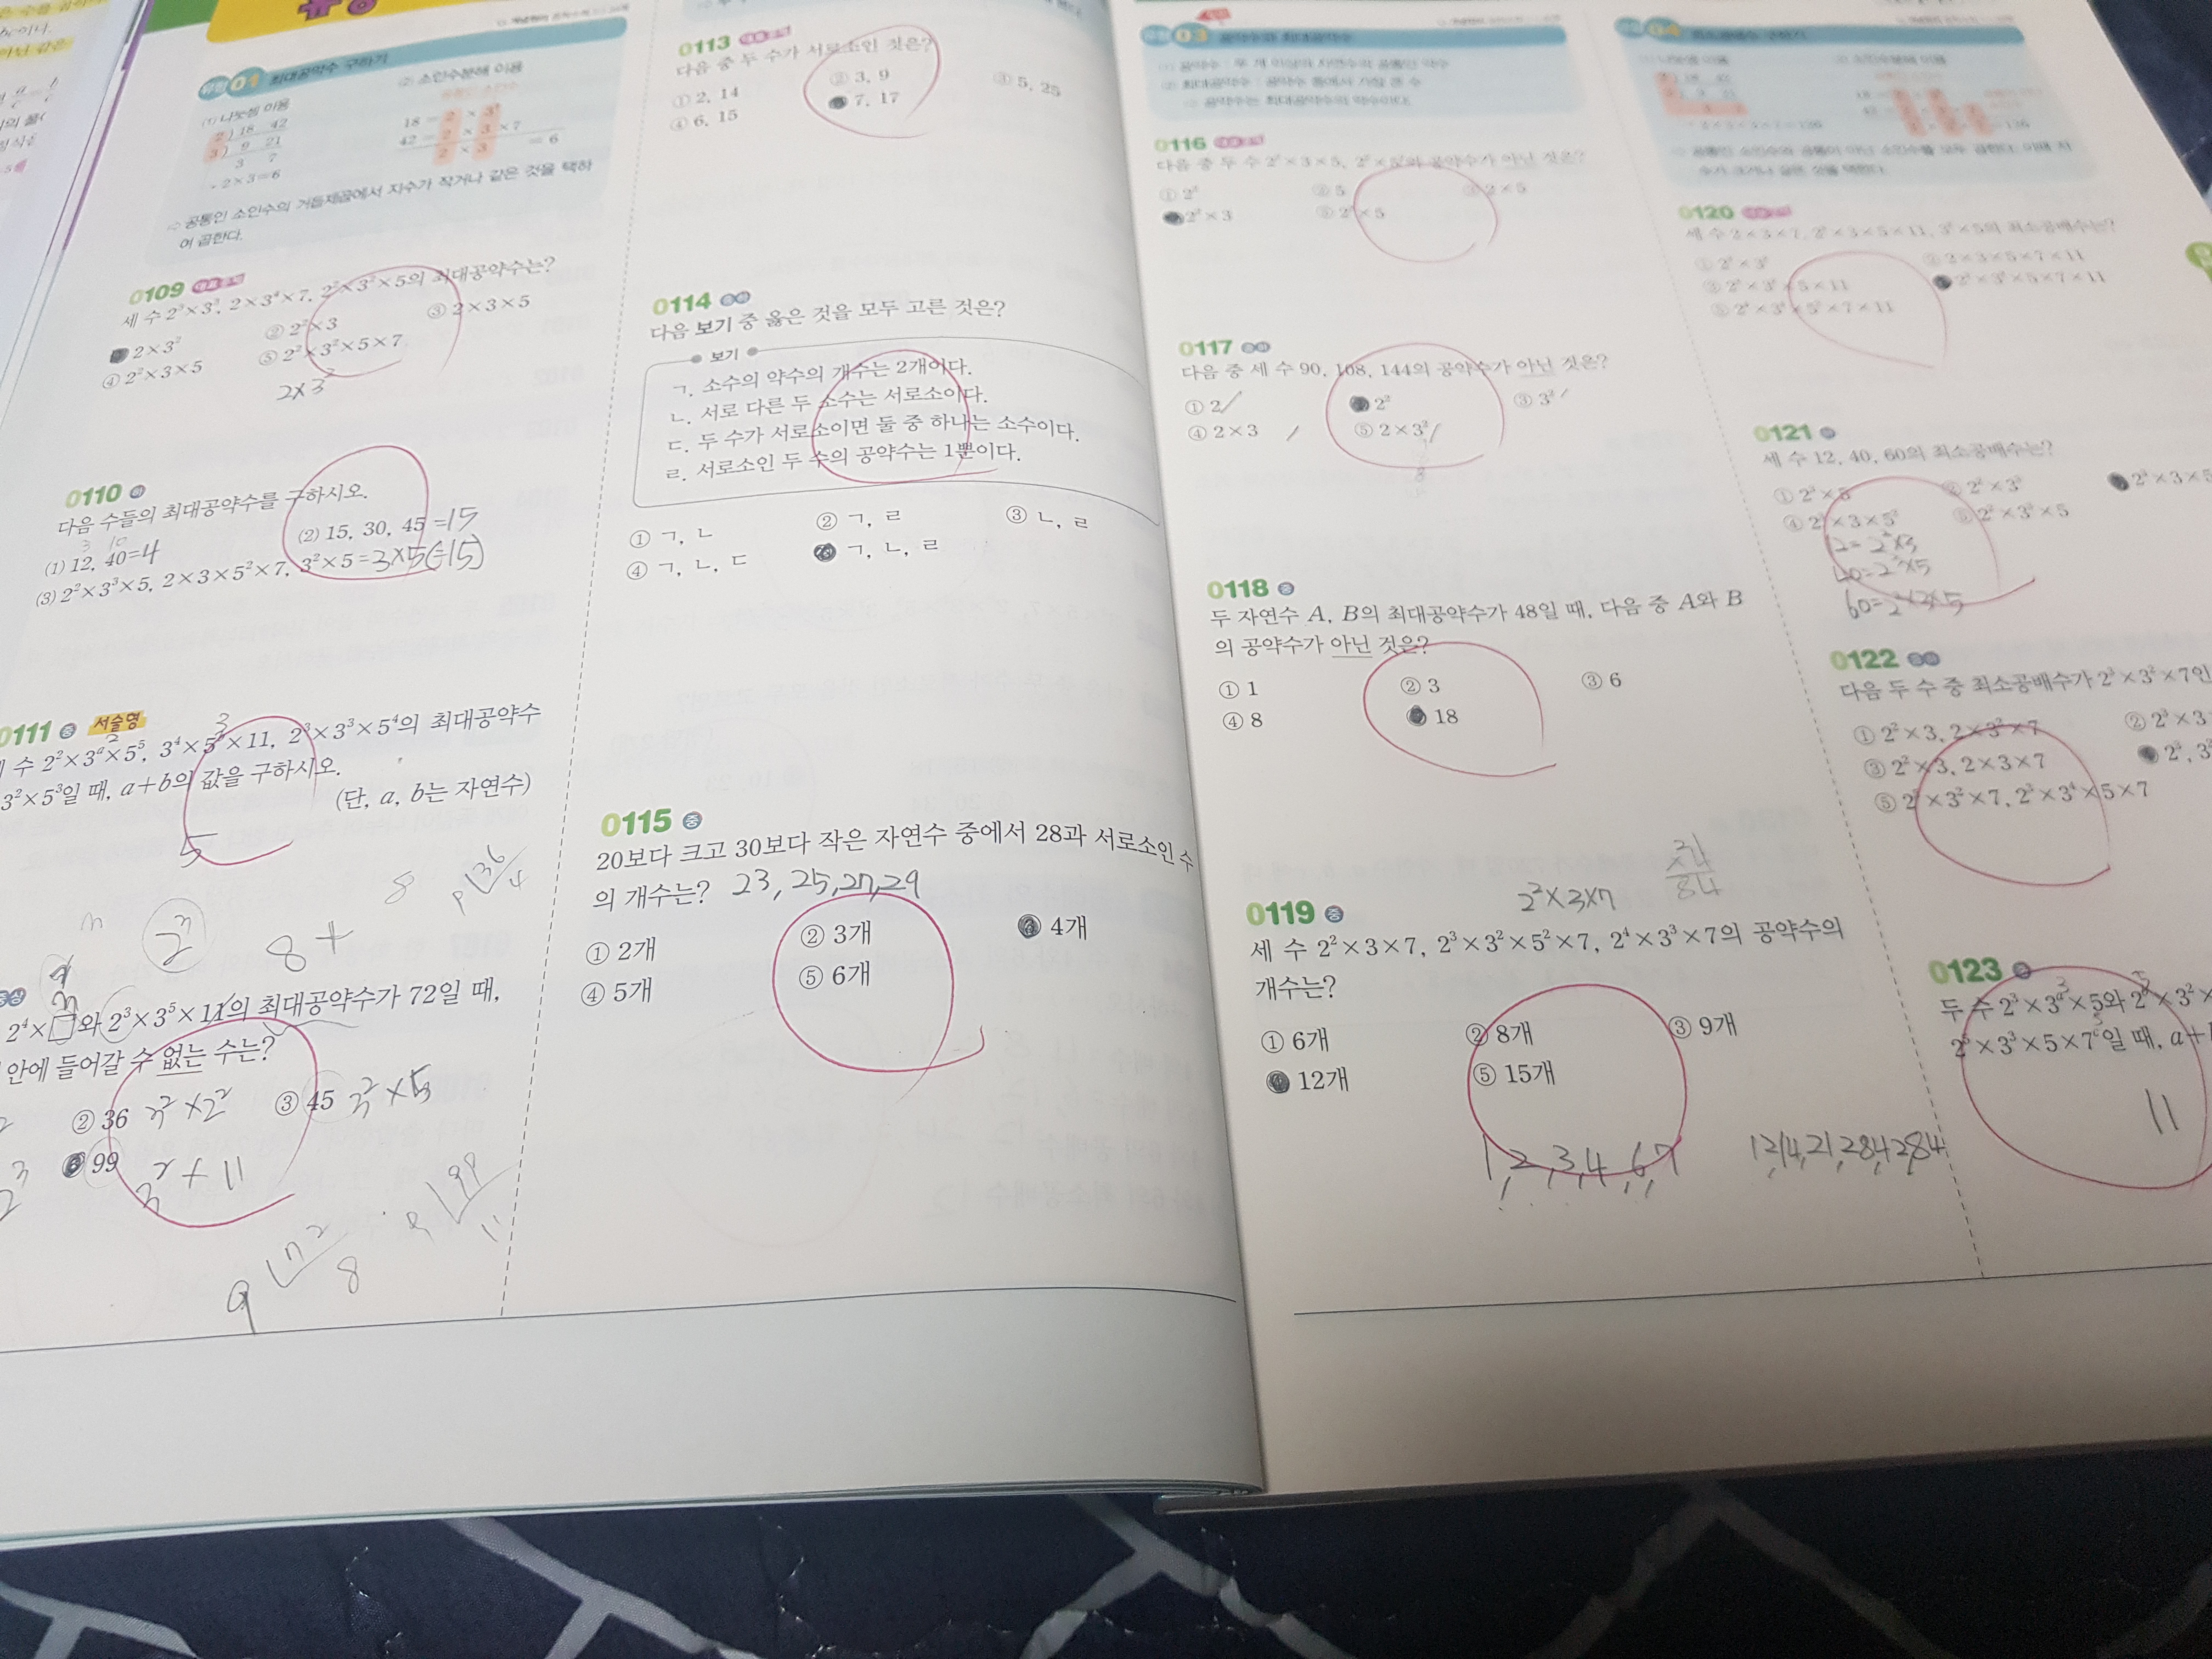 유형 01 최대공약수 구하기
(1) 나눗셈 이용
2) 18 42
3) 9 21
3 7
∴ 2×3=6
② 소인수분해 이용
18 = 2 × 3²
42 = 2 × 3 × 7
2 × 3 = 6
⇨ 공통인 소인수의 거듭제곱에서 지수가 작거나 같은 것을 택하
여 곱한다.
0109 대표문제
세 수 2³×3³, 2×3⁴×7, 2²×3²×5의 최대공약수는?
① 2×3²
② 2²×3
③ 2×3×5
④ 2²×3×5
⑤ 2²×3²×5×7
2×3²
0110 하
다음 수들의 최대공약수를 구하시오.
3 10
(1) 12, 40=4
(2) 15, 30, 45=15
(3) 2²×3³×5, 2×3×5²×7, 3²×5=3×5(=15)
0111 중 서술형
수 2²×3ᵃ×5⁵, 3⁴×5ᵇ×11, 2³×3³×5⁴의 최대공약수
3²×5³일 때, a+b의 값을 구하시오.
(단, a, b는 자연수)
5
2ⁿ
8+
8
9 36
4
중상
2⁴×□와 2³×3⁵×11의 최대공약수가 72일 때,
안에 들어갈 수 없는 수는?
② 36 3²×2²
③ 45 3²×5
⑤ 99 3²+11
9 72
8
9 99
11
0113 대표문제
다음 중 두 수가 서로소인 것은?
① 2, 14
② 3, 9
③ 5, 25
④ 6, 15
⑤ 7, 17
0114 중하
다음 보기 중 옳은 것을 모두 고른 것은?
보기
ㄱ. 소수의 약수의 개수는 2개이다.
ㄴ. 서로 다른 두 소수는 서로소이다.
ㄷ. 두 수가 서로소이면 둘 중 하나는 소수이다.
ㄹ. 서로소인 두 수의 공약수는 1뿐이다.
① ㄱ, ㄴ
② ㄱ, ㄹ
③ ㄴ, ㄹ
④ ㄱ, ㄴ, ㄷ
⑤ ㄱ, ㄴ, ㄹ
0115 중
20보다 크고 30보다 작은 자연수 중에서 28과 서로소인 수
의 개수는? 23, 25, 27, 29
① 2개
② 3개
③ 4개
④ 5개
⑤ 6개
유형 03 공약수와 최대공약수
(1) 공약수 : 두 개 이상의 자연수의 공통인 약수
(2) 최대공약수 : 공약수 중에서 가장 큰 수
⇨ 공약수는 최대공약수의 약수이다.
0116 대표문제
다음 중 두 수 2³×3×5, 2²×5²의 공약수가 아닌 것은?
① 2²
② 5
③ 2×5
④ 2²×3
⑤ 2²×5
0117 중하
다음 중 세 수 90, 108, 144의 공약수가 아닌 것은?
① 2
② 2²
③ 3²
④ 2×3
⑤ 2×3²
0118 중
두 자연수 A, B의 최대공약수가 48일 때, 다음 중 A와 B
의 공약수가 아닌 것은?
① 1
② 3
③ 6
④ 8
⑤ 18
2²×3×7
21
×4
84
0119 중
세 수 2²×3×7, 2³×3²×5²×7, 2⁴×3³×7의 공약수의
개수는?
① 6개
② 8개
③ 9개
④ 12개
⑤ 15개
1, 2, 3, 4, 6, 7
12, 14, 21, 28, 42, 84
유형 04 최소공배수 구하기
⇨ 공통인 소인수와 공통이 아닌 소인수를 모두 곱한다. 이때 지
수가 크거나 같은 것을 택한다.
0120 대표문제
세 수 2×3×7, 2²×3×5×11, 3²×5의 최소공배수는?
① 2²×3²
② 2×3×5×7×11
③ 2²×3²×5×11
④ 2²×3²×5×7×11
0121 하
세 수 12, 40, 60의 최소공배수는?
① 2³×5
② 2²×3²
③ 2³×3×5
④ 2³×3×5²
⑤ 2²×3²×5
12=2²×3
40=2³×5
60=2²×3×5
0122 중하
다음 두 수 중 최소공배수가 2³×3²×7인
① 2²×3, 2×3²×7
② 2³×3
③ 2²×3, 2×3×7
0123 중
두 수 2³×3ᵃ×5와 2ᵇ×3²×
2⁵×3³×5×7ᶜ일 때, a+
11